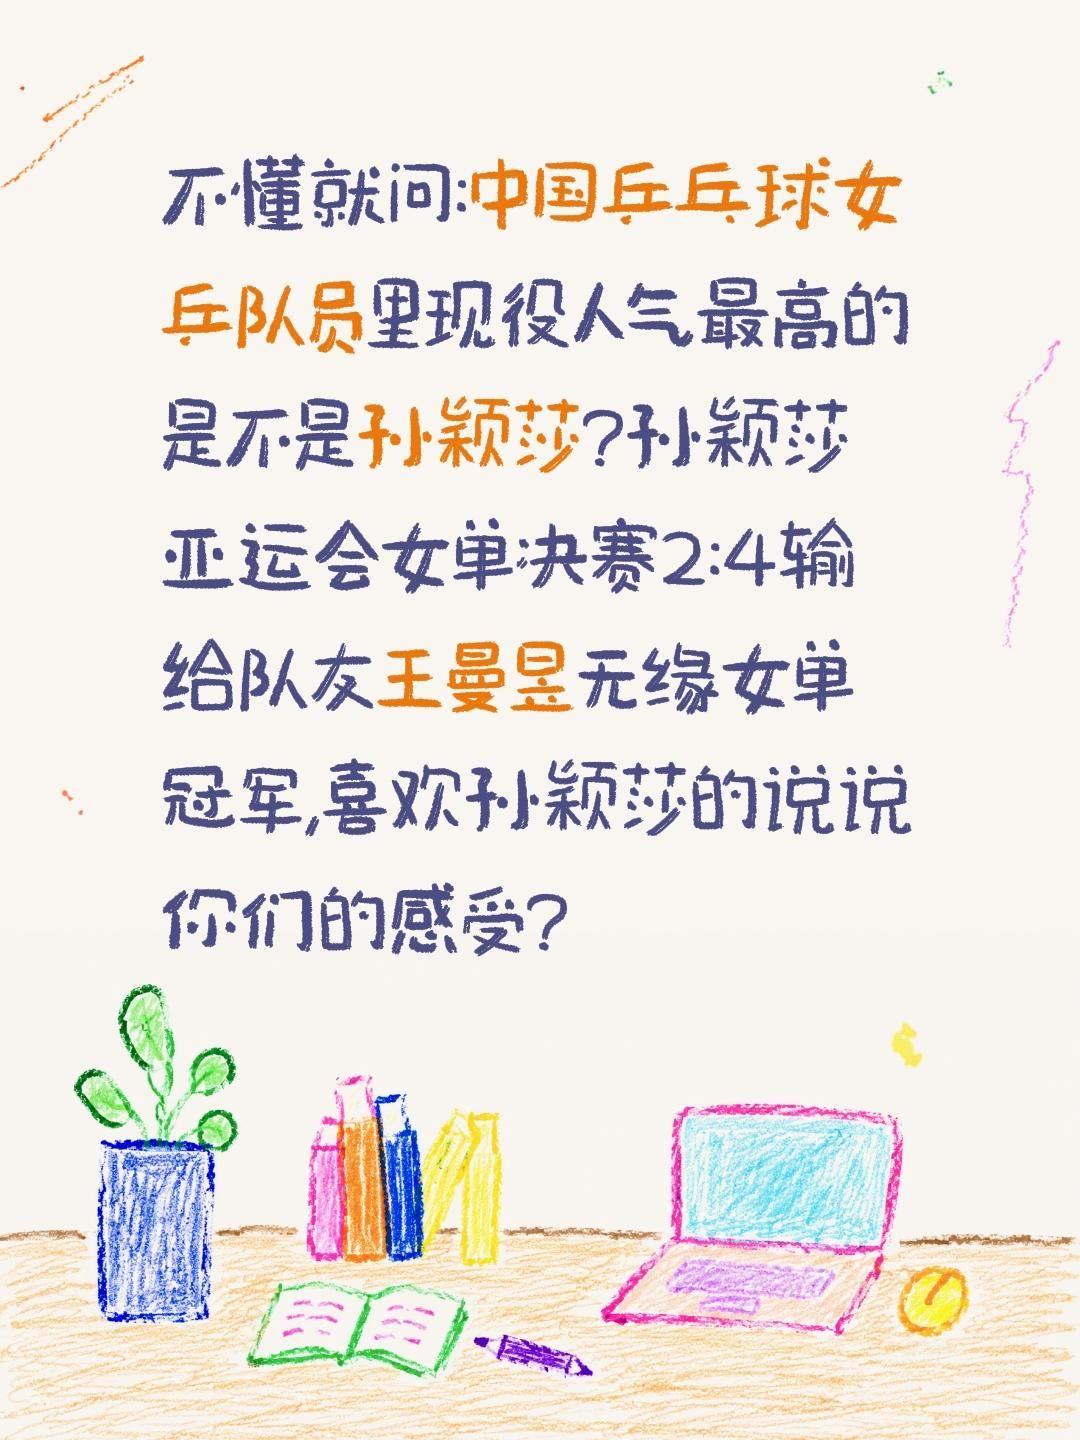 不懂就问:中国乒乓球女
乒队员里现役人气最高的
是不是孙颖莎?孙颖莎
亚运会女单决赛2:4输
给队友王曼昱无缘女单
冠军,喜欢孙颖莎的说说
你们的感受?